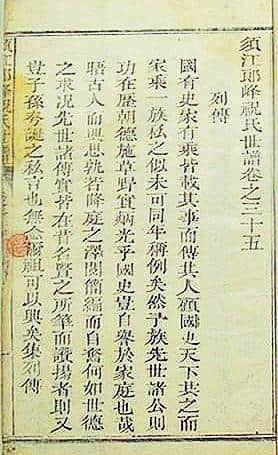 須江郎峰祝氏世譜卷之三十五
列傳
國有史家有乘皆載其事而傳其人顧國史天下共之而
家乘一族私之似未可同年稱例矣然予族先世諸公則
功在歷朝德施草野宜炳光乎國史豈自譽於家庭也哉
晤古人而興思執若峰庭之澤閱簡編而自奮何如世德
之求况先世諸傳實皆在昔名賢之所筆而讚揚者則又
豈子孫夸誕之私言也無念爾祖可以興矣集列傳
須江郎峰祝氏世譜